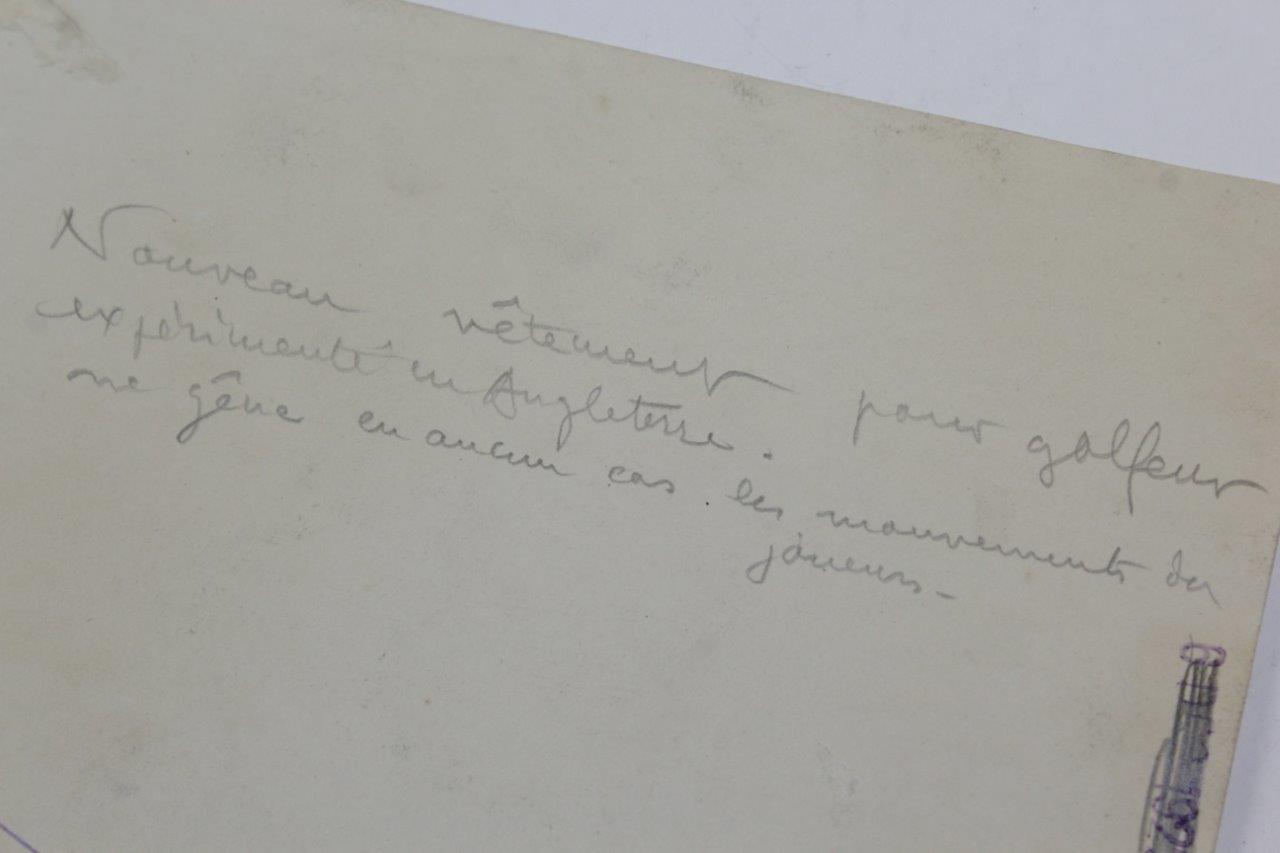 Nouveau vêtement pour golfeur
expérimenté en Angleterre.
ne gêne en aucun cas les mouvements des
joueurs -